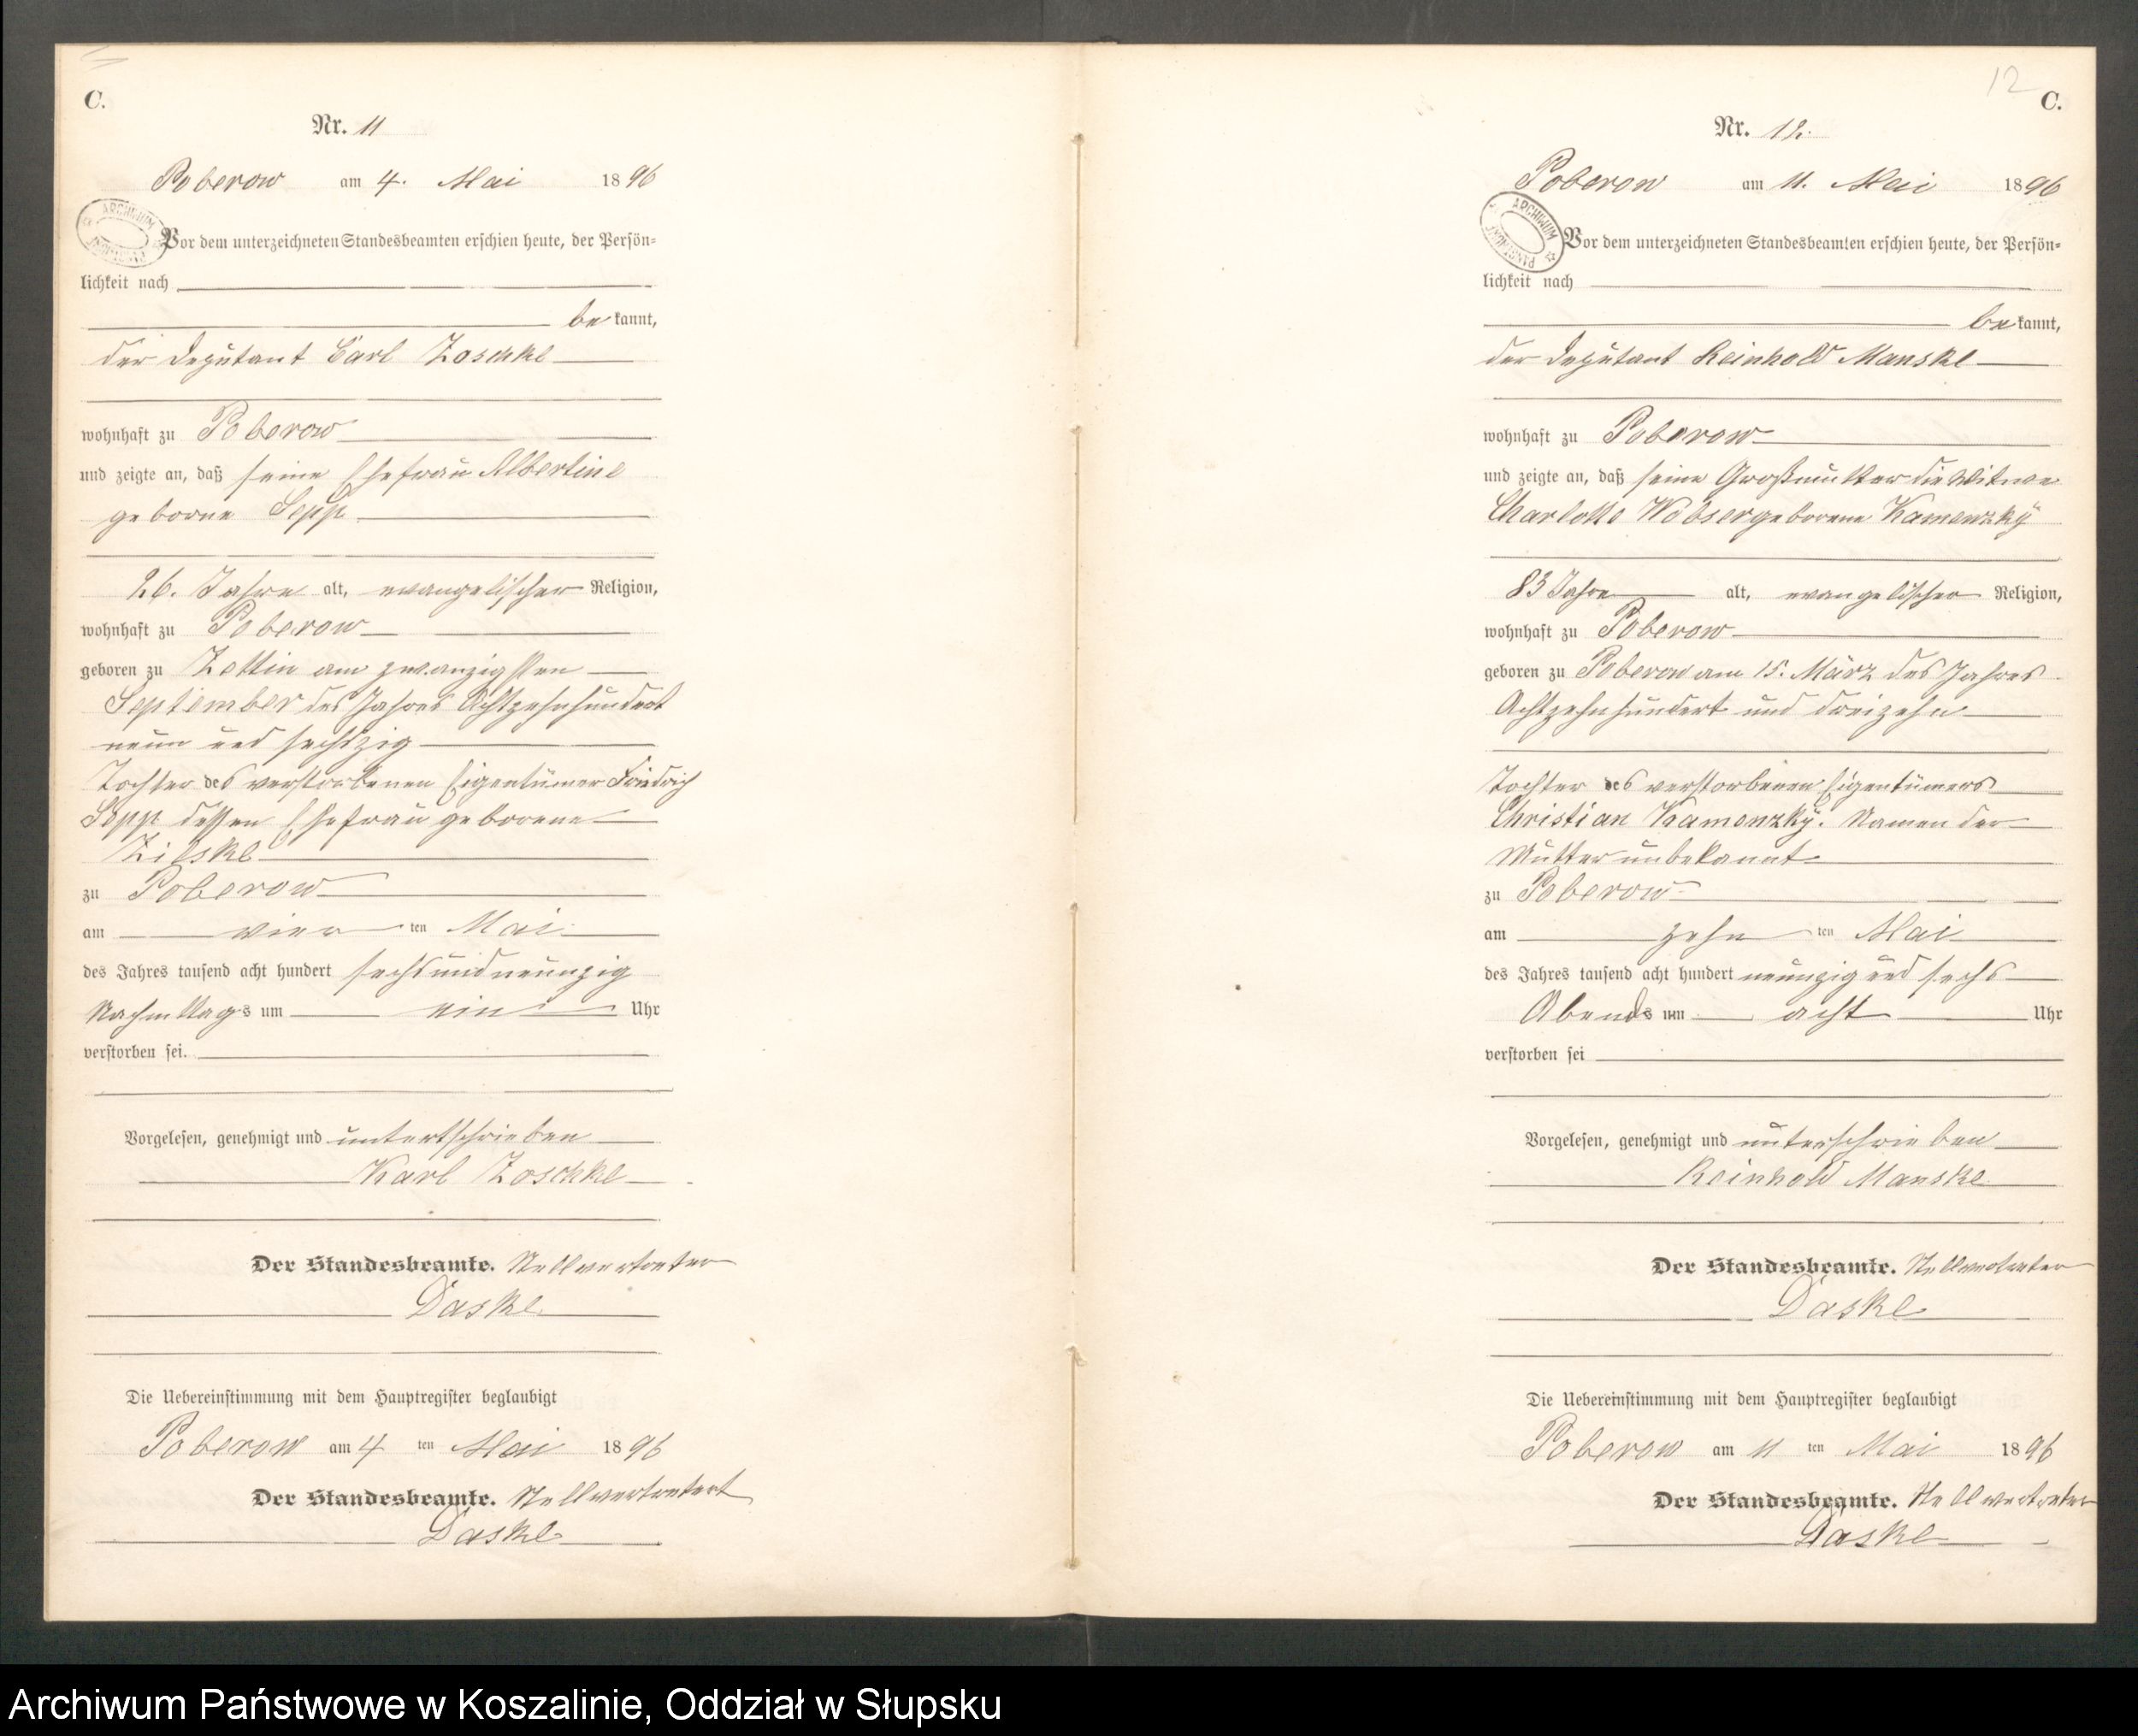 C.
Nr. 11
Poberow am 4. Mai 1896
ARCHIWUM
Vor dem unterzeichneten Standesbeamten erschien heute, der Persön=
lichkeit nach
be kannt,
der Deputant Carl Zoschke
wohnhaft zu Poberow
und zeigte an, daß seine Ehefrau Albertine
geborne Sepp
26. Jahre alt, evangelischer Religion,
wohnhaft zu Poberow
geboren zu Zettin am zwanzigsten
September des Jahres Achtzehnhundert
neun und sechszig
Tochter des verstorbenen Eigentümer Friedrich
Sepp dessen Ehefrau geborene
Zilske
zu Poberow
am vier ten Mai
des Jahres tausend acht hundert sechsundneunzig
Nachmittags um ein Uhr
verstorben sei.
Vorgelesen, genehmigt und untertschrieben
Karl Zoschke
Der Standesbeamte. Stellvertreter
Daske
Die Uebereinstimmung mit dem Hauptregister beglaubigt
Poberow am 4 ten Mai 1896
Der Standesbeamte. Stellvertretert
Daske
12
C.
Nr. 12.
Poberow am 11. Mai 1896
ARCHIWUM
Vor dem unterzeichneten Standesbeamten erschien heute, der Persön=
lichkeit nach
be kannt,
der Deputant Reinhold Manske
wohnhaft zu Poberow
und zeigte an, daß seine Großmutter die Witwe
Charlotte Wobser geborene Kamenzky
83 Jahre alt, evangelischer Religion,
wohnhaft zu Poberow
geboren zu Poberow am 15. März des Jahres
Achtzehnhundert und dreizehn
Tochter des verstorbenen Eigentümers
Christian Kamenzky. Namen der
Mutter unbekannt
zu Poberow
am zehn ten Mai
des Jahres tausend acht hundert neunzig und sechs
Abends um acht Uhr
verstorben sei
Vorgelesen, genehmigt und unterschrieben
Reinhold Manske
Der Standesbeamte. Stellvertreter
Daske
Die Uebereinstimmung mit dem Hauptregister beglaubigt
Poberow am 11 ten Mai 1896
Der Standesbeamte. Stellvertreter
Daske
Archiwum Państwowe w Koszalinie, Oddział w Słupsku